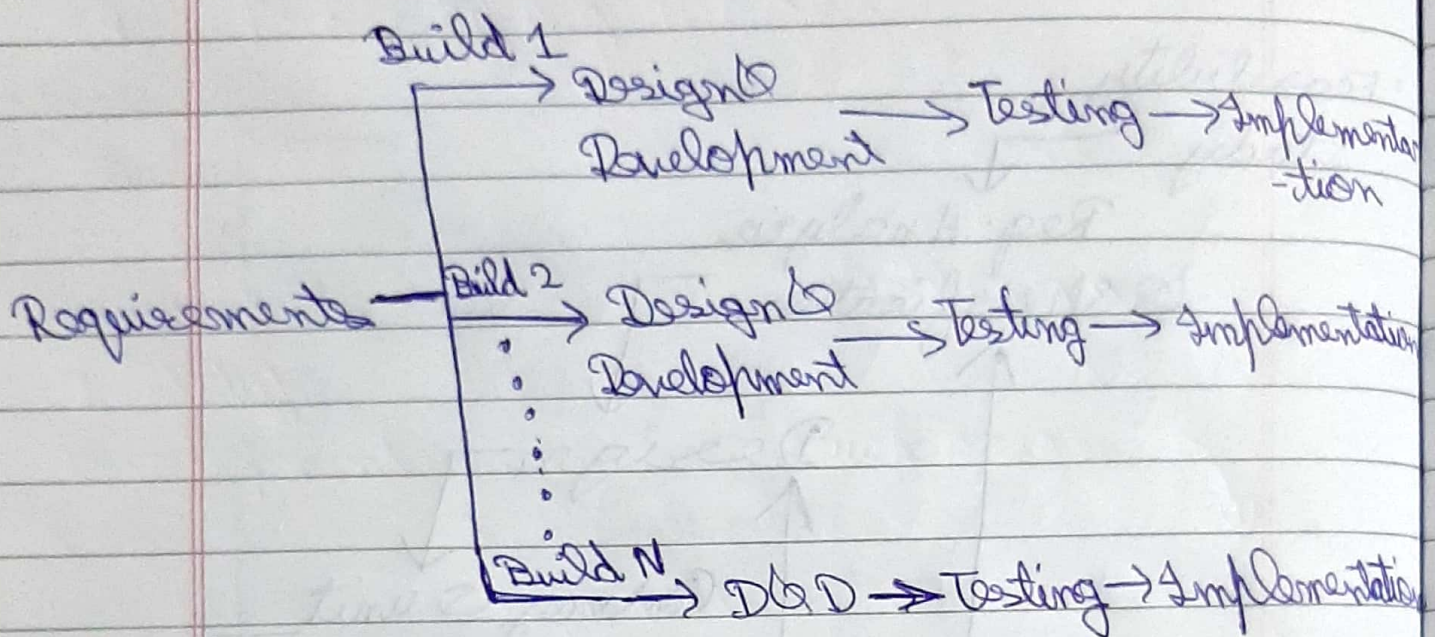 Build 1
Design &
Development → Testing → Implementa
-tion
Requirements
Build 2
Design &
Development → Testing → Implementation
Build N
D&D → Testing → Implementation